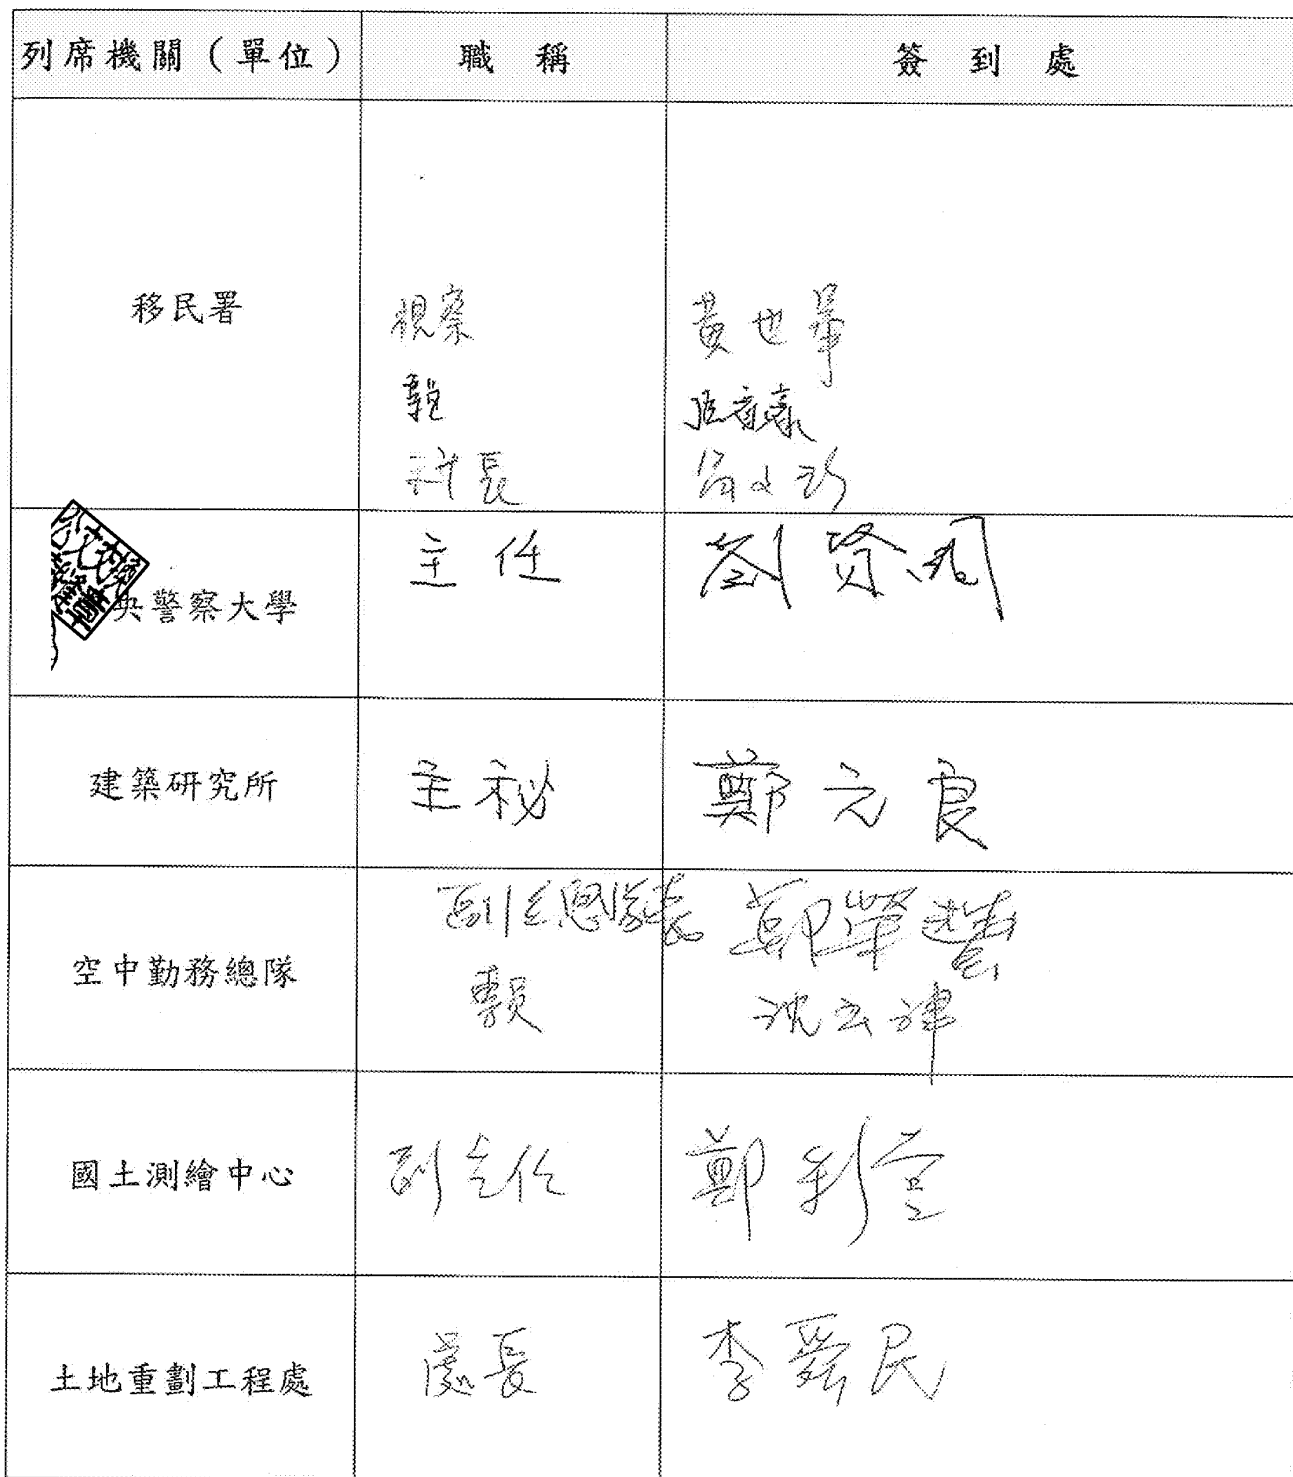 列席機關（單位） 職稱 簽到處
移民署
視察 黃也
科長
央警察大學 主任 劉
建築研究所 主祕 鄭元良
空中勤務總隊
副總隊長 鄭榮豊
專員 沈
國土測繪中心 副主任 鄭彩堂
土地重劃工程處 處長 李舜民